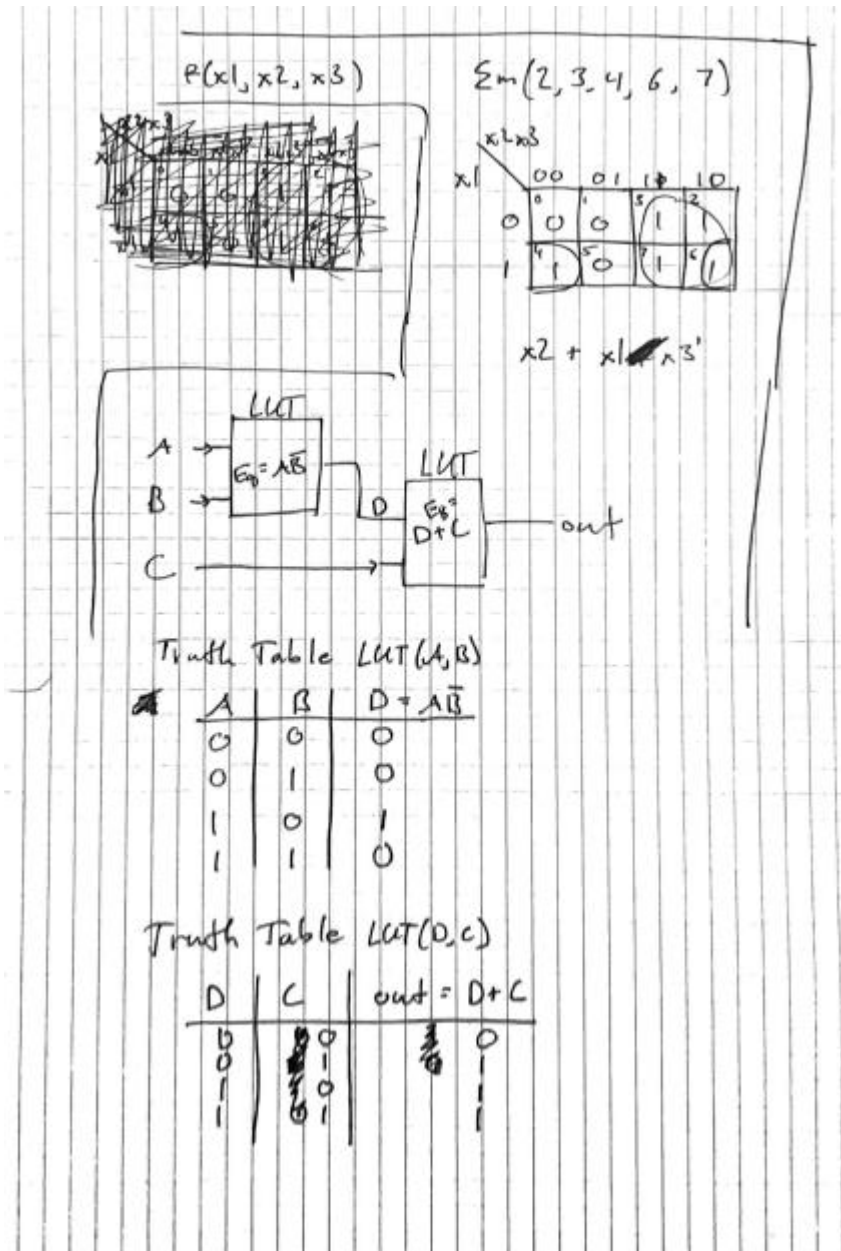 f(x1, x2, x3)
Σm(2, 3, 4, 6, 7)
x2x3
x1 00 01 11 10
0 0 0 1 0 3 1 2 1
1 4 1 5 0 7 1 6 1
x2 + x1 x3'
LUT
A
Eq = AB̅
B
LUT
D
Eq =
D+C
out
C
Truth Table LUT(A,B)
A B D = AB̅
0 0 0
0 1 0
1 0 1
1 1 0
Truth Table LUT(D,C)
D C out = D+C
0 0 0
0 1 1
1 0 1
1 1 1